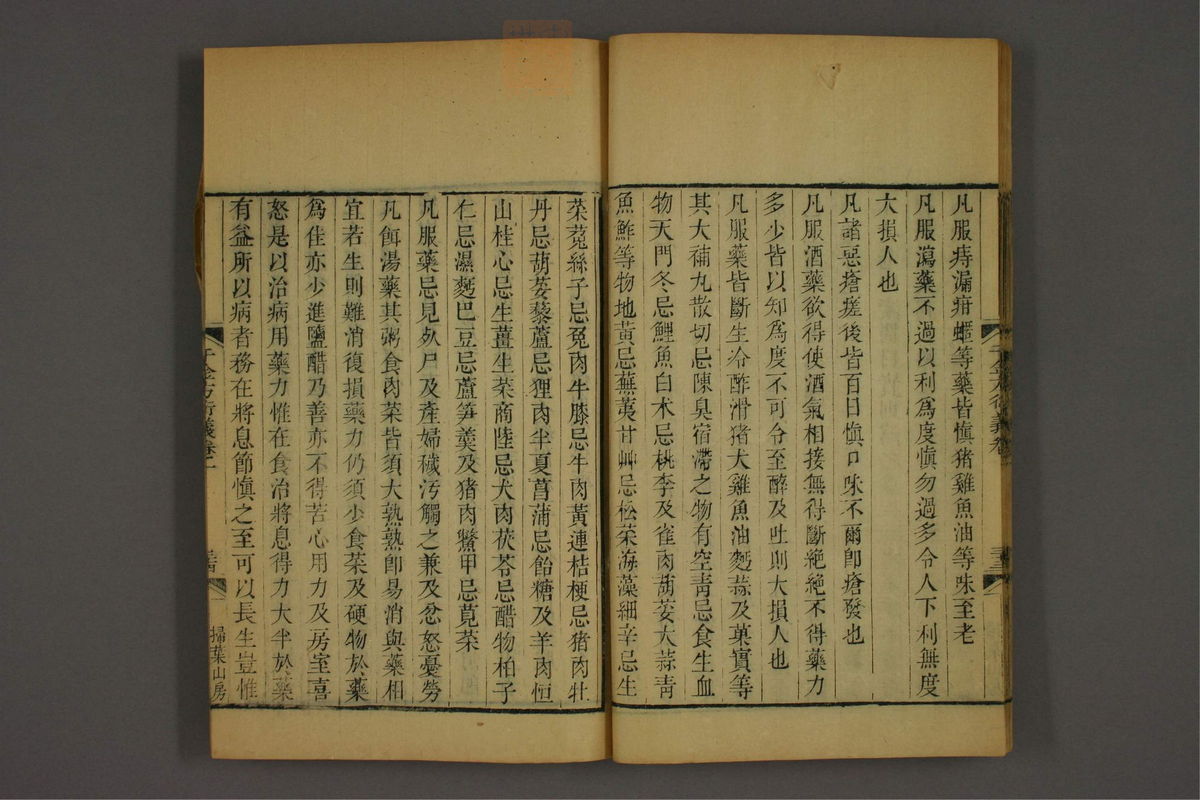 凡服痔漏疳䘌等藥皆慎猪雞魚油等味至老
凡服瀉藥不過以利爲度慎勿過多令人下利無度
大損人也
凡諸惡瘡瘥後皆百日慎口味不爾卽瘡發也
凡服酒藥欲得使酒氣相接無得斷絶絶不得藥力
多少皆以知爲度不可令至醉及吐則大損人也
凡服藥皆斷生冷酢滑猪犬雞魚油麪蒜及菓實等
其大補丸散切忌陳臭宿滯之物有空靑忌食生血
物天門冬忌鯉魚白术忌桃李及雀肉葫荽大蒜靑
魚鮓等物地黃忌蕪荑甘艸忌菘菜海藻細辛忌生
菜菟絲子忌兔肉牛膝忌牛肉黃連桔梗忌猪肉牡
丹忌葫荽藜蘆忌狸肉半夏菖蒲忌飴糖及羊肉恒
山桂心忌生薑生菜商陸忌犬肉茯苓忌醋物柏子
仁忌濕麪巴豆忌蘆笋羹及猪肉鱉甲忌莧菜
凡服藥忌見死尸及產婦穢污觸之兼及忿怒憂勞
凡餌湯藥其粥食肉菜皆須大熟熟卽易消與藥相
宜若生則難消復損藥力仍須少食菜及硬物於藥
爲佳亦少進鹽醋乃善亦不得苦心用力及房室喜
怒是以治病用藥力惟在食治將息得力大半於藥
有益所以病者務在將息節慎之至可以長生豈惟
千金方衍義卷一
掃葉山房